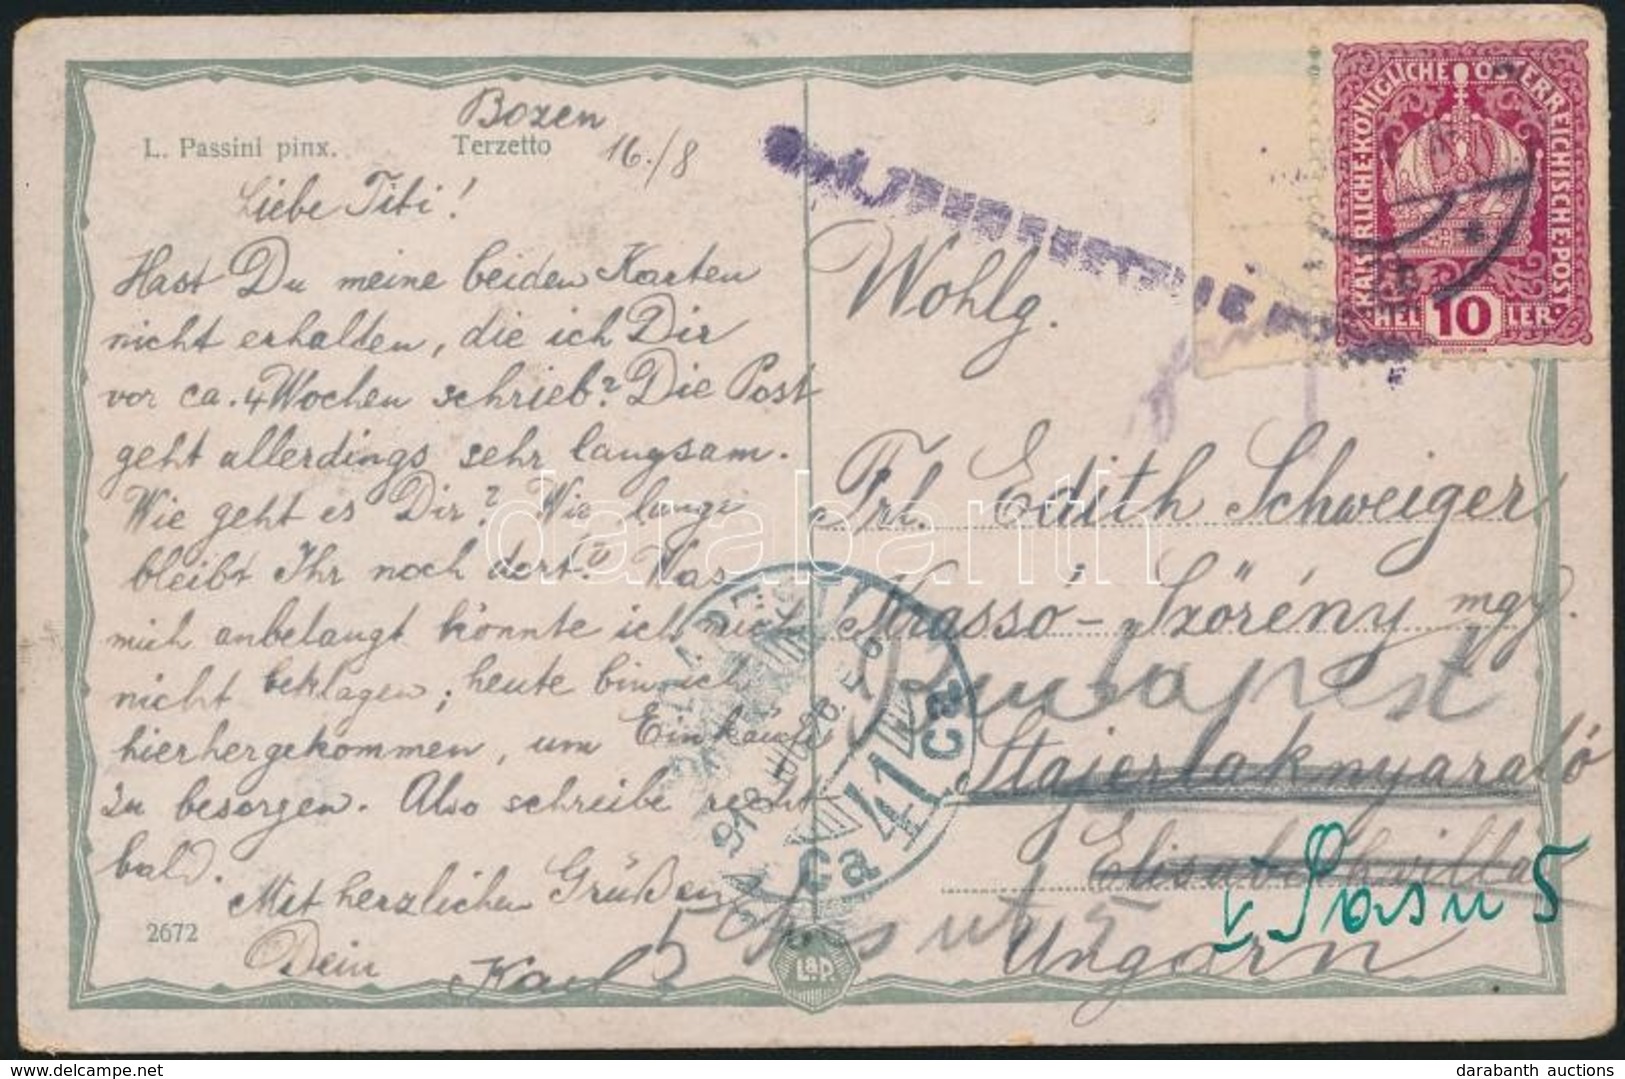 L. Passini pinx.
Bozen
Terzetto
16./8
Liebe Titi!
Hast Du meine beiden Karten
nicht erhalten, die ich Dir
vor ca. 4 Wochen schrieb? Die Post
geht allerdings sehr langsam.
Wie geht es Dir? Wie lange
bleibt Ihr noch dort? Was
mich anbelangt könnte ich mich
nicht beklagen; heute bin ich
hierhergekommen, um Einkäufe
zu besorgen. Also schreibe recht
bald.
Mit herzlichen Grüßen
Dein
Karl
2672
L&P.
KAISERLICHE·KÖNIGLICHE ÖSTERREICHISCHE·POST
HEL 10 LER
Wohlg.
Frl. Edith Schweiger
Krassó-Szörény mgy.
Budapest
Stajerlaknyaraló
Elisabethvilla
Ungarn
5
918
41
Ca
Ca
darabanth
darabanth auctions